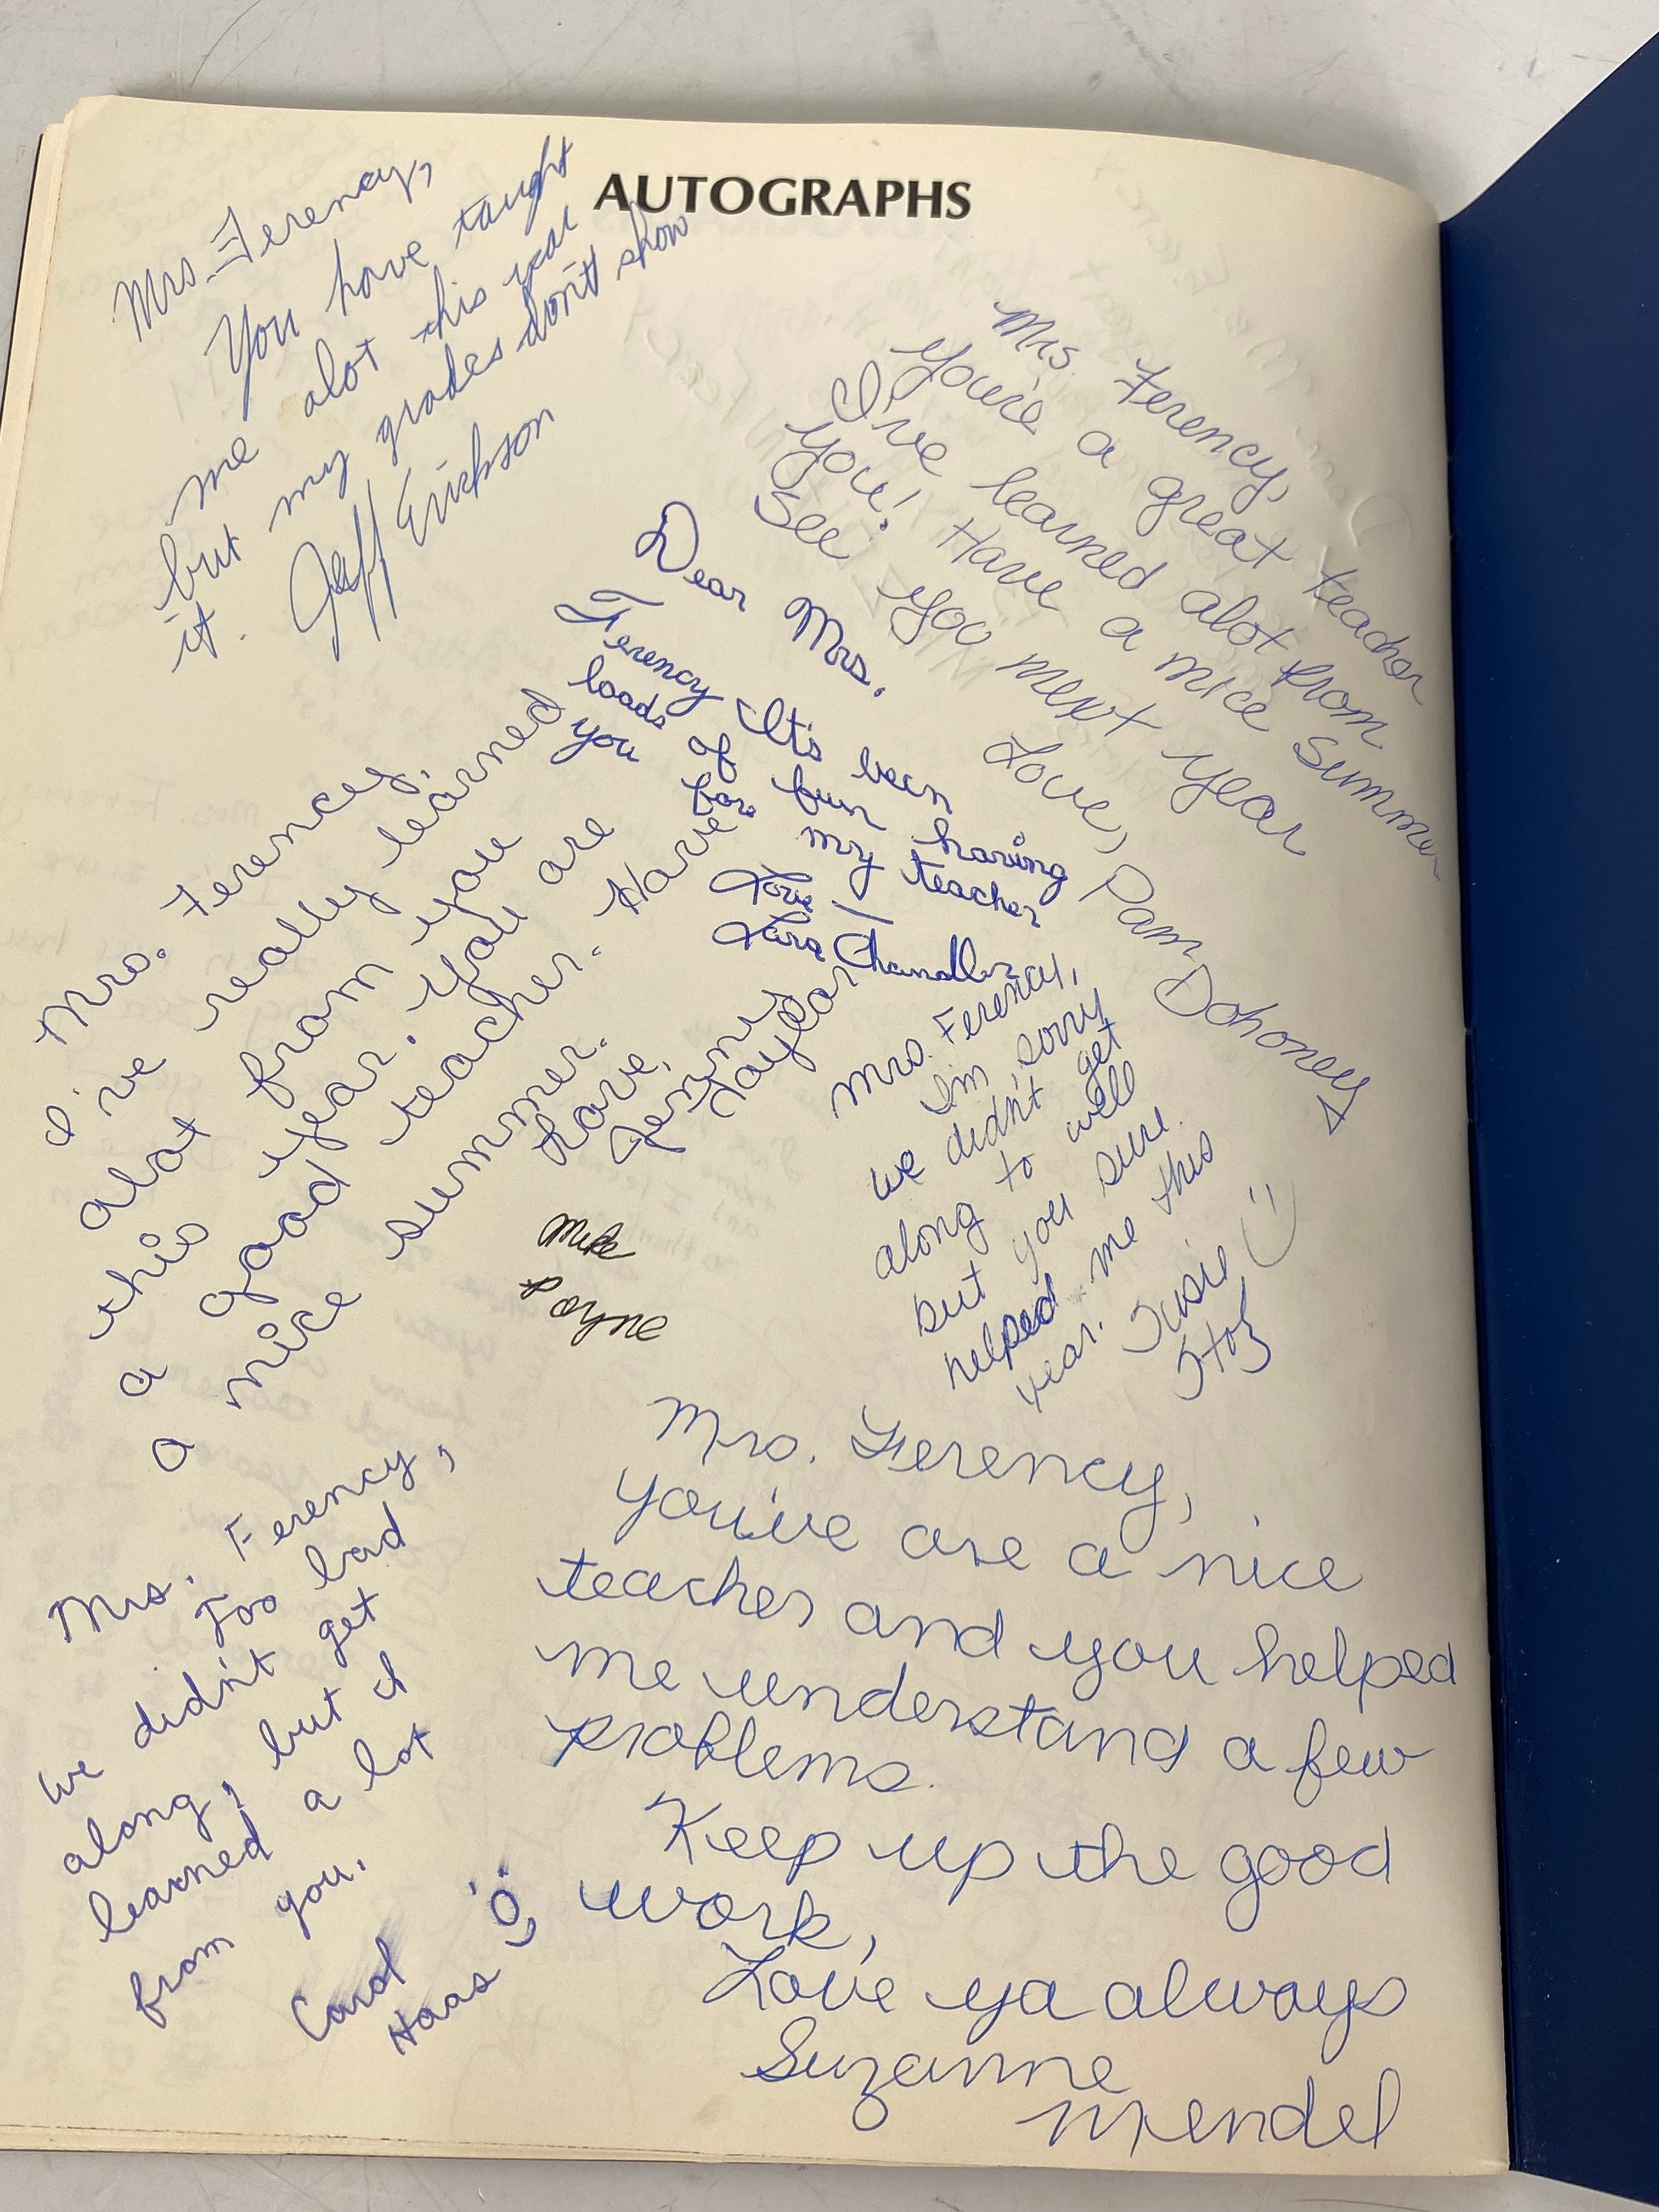 AUTOGRAPHS
Mrs. Ferency,
You have taught
me alot this year
but my grades don't show
it. Jeff Erickson
Mrs. Ferency,
You're a great teacher
I've learned alot from
you! Have a nice summer
See you next year
Love, Pam Dohoney
Dear Mrs.
Ferency It's been
loads of fun having
you for my teacher
Love
Lara Chandler
Mrs. Ferency,
I've really learned
alot from you
this year. You are
a good teacher. Have
a nice summer.
Love,
Jennie
Taylor
Mrs. Ferency,
I'm sorry
we didn't get
along to well
but you sure
helped me this
year. Susie
Stotz
Mike
Payne
Mrs. Ferency,
You've are a nice
teacher and you helped
me understand a few
problems.
Keep up the good
work,
Love ya always
Suzanne
Mendel
Mrs. Ferency,
Too bad
we didn't get
along, but I
learned a lot
from you.
Carol
Haas